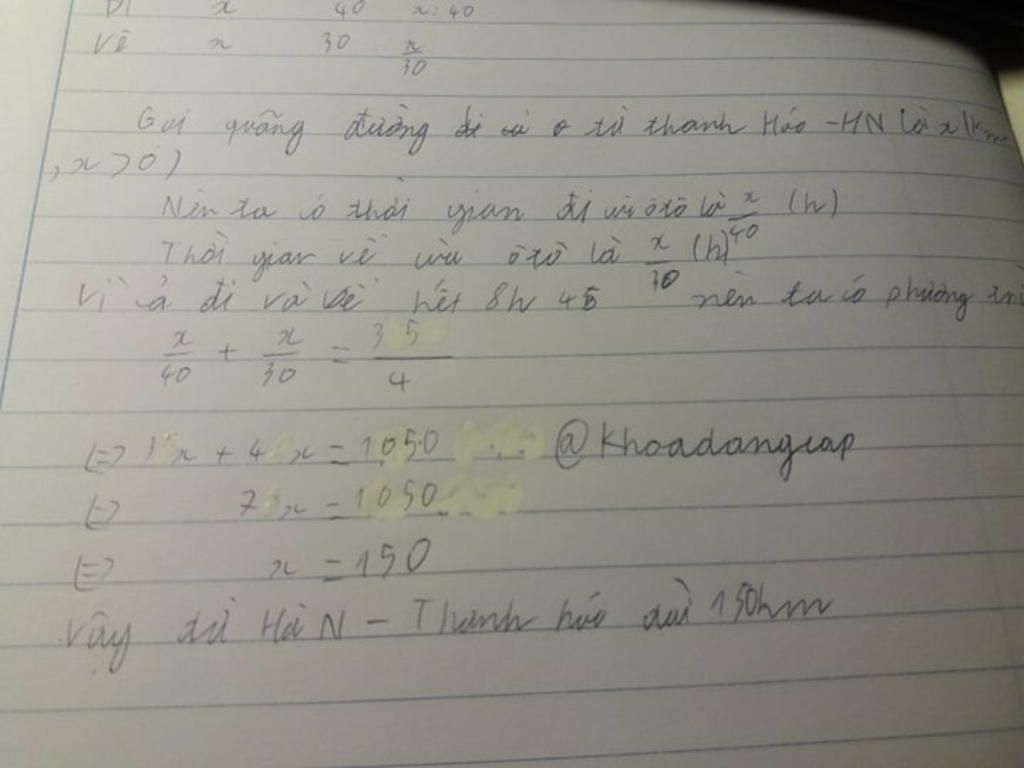 Đi x 40 x:40
Về x 30 x/30
Gọi quãng đường từ thanh Hóa - HN là x (km
, x > 0)
Nên ta có thời gian đi của ôtô là x/40 (h)
Thời gian về của ôtô là x/30 (h)
Vì cả đi và về hết 8h 45 nên ta có phương
x/40 + x/30 = 35/4
<=> x + 4x = 1050 @Khoadangcap
<=> 7x = 1050
<=> x = 150
Vậy từ Hà N - Thanh hóa dài 150km